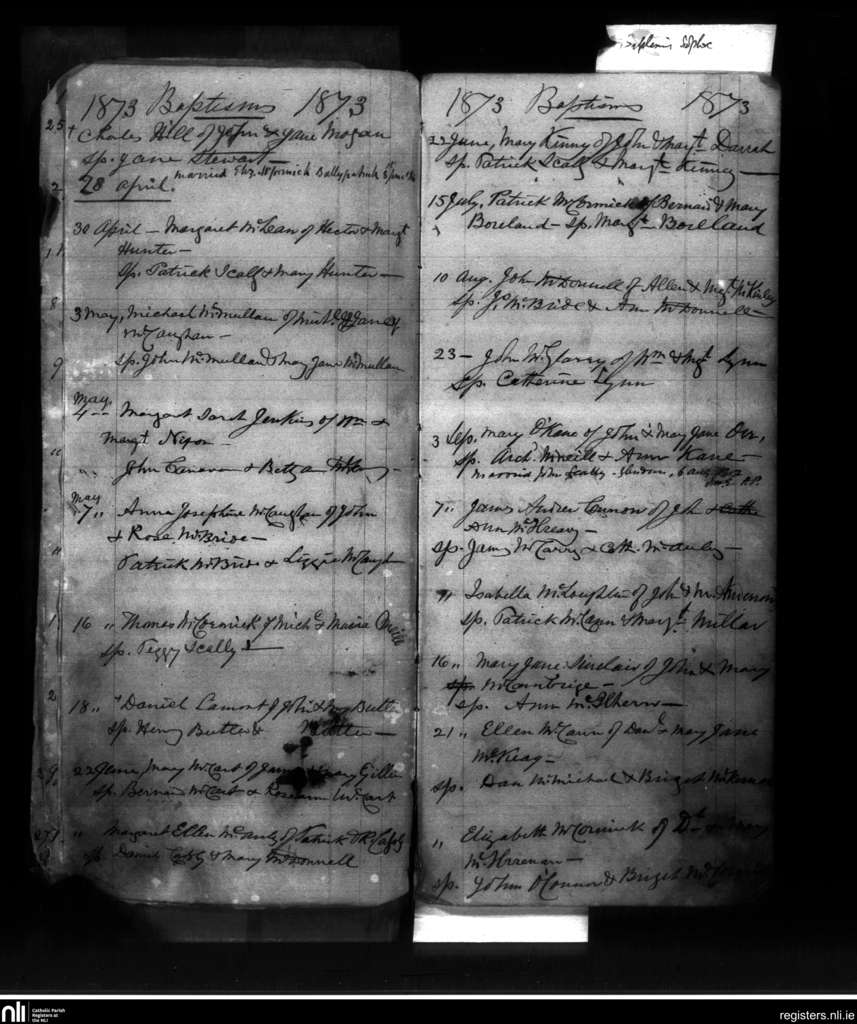 1873 Baptisms 1873
25 + Charles Hill of John & Jane Mogan
sp. Jane Stewart —
28 April. married Eliz. McCormick Ballypatrick
30 April — Margaret McLean of Hector & Margt
Hunter —
sp. Patrick Scally & Mary Hunter —
3 May, Michael McMullan of & Jane
McCaughan —
sp. John McMullan & Mary Jane McMullan
May
4 — Margaret Sarah Jenkins of Wm &
Margt Nixon —
John Canavan & Betty
May
7 " Anna Josephine McCaughan of John
& Rose McBride —
Patrick McBride & Lizzie McCaugh
16 " Thomas McCormick of Michl & Maria
sp. Peggy Scally
18 " Daniel Lamont of John & Butler
sp. Henry Butler &
22 June, Mary McCart of James & Mary Gillen
sp. Bernard McCart & Roseann McCart
" Margaret Ellen McAuly of Patrick &
sp. Daniel & Mary McDonnell
Baptisms
1873 Baptisms 1873
22 June, Mary Kinny of John & Margt Darrah
sp. Patrick Scally & Margt Kinney —
15 July, Patrick McCormick of Bernard & Mary
Boreland — sp. Margt Boreland
10 Aug. John McDonnell of Allen & Mgt McKinley
sp. Js. McBride & Ann McDonnell —
23 — John McGlarry of Wm & Mgt Lynn
sp. Catherine Lynn
3 Sep. Mary O'Kane of John & Mary Jane Orr,
sp. Archd McNeill & Ann Kane —
married John Scally - Glendun, 6 Aug
P.P.
7 " James Andrew Cannon of Joh &
Ann McIlreavy —
sp. James McCarry & Cath. McAuley —
" Isabella McLoughlin of John &
sp. Patrick McCann & Margt Millar
16 " Mary Jane Sinclair of John & Mary
McCambrige —
sp. Ann McIlhern —
21 " Ellen McCann of Danl & Mary Jane
McKeag —
sp. Dan McMichael & Briget
" Elizabeth McCormick of & Mary
McIlreenan —
sp. John O'Connor & Briget
nli
Catholic Parish
Registers at
the NLI
registers.nli.ie